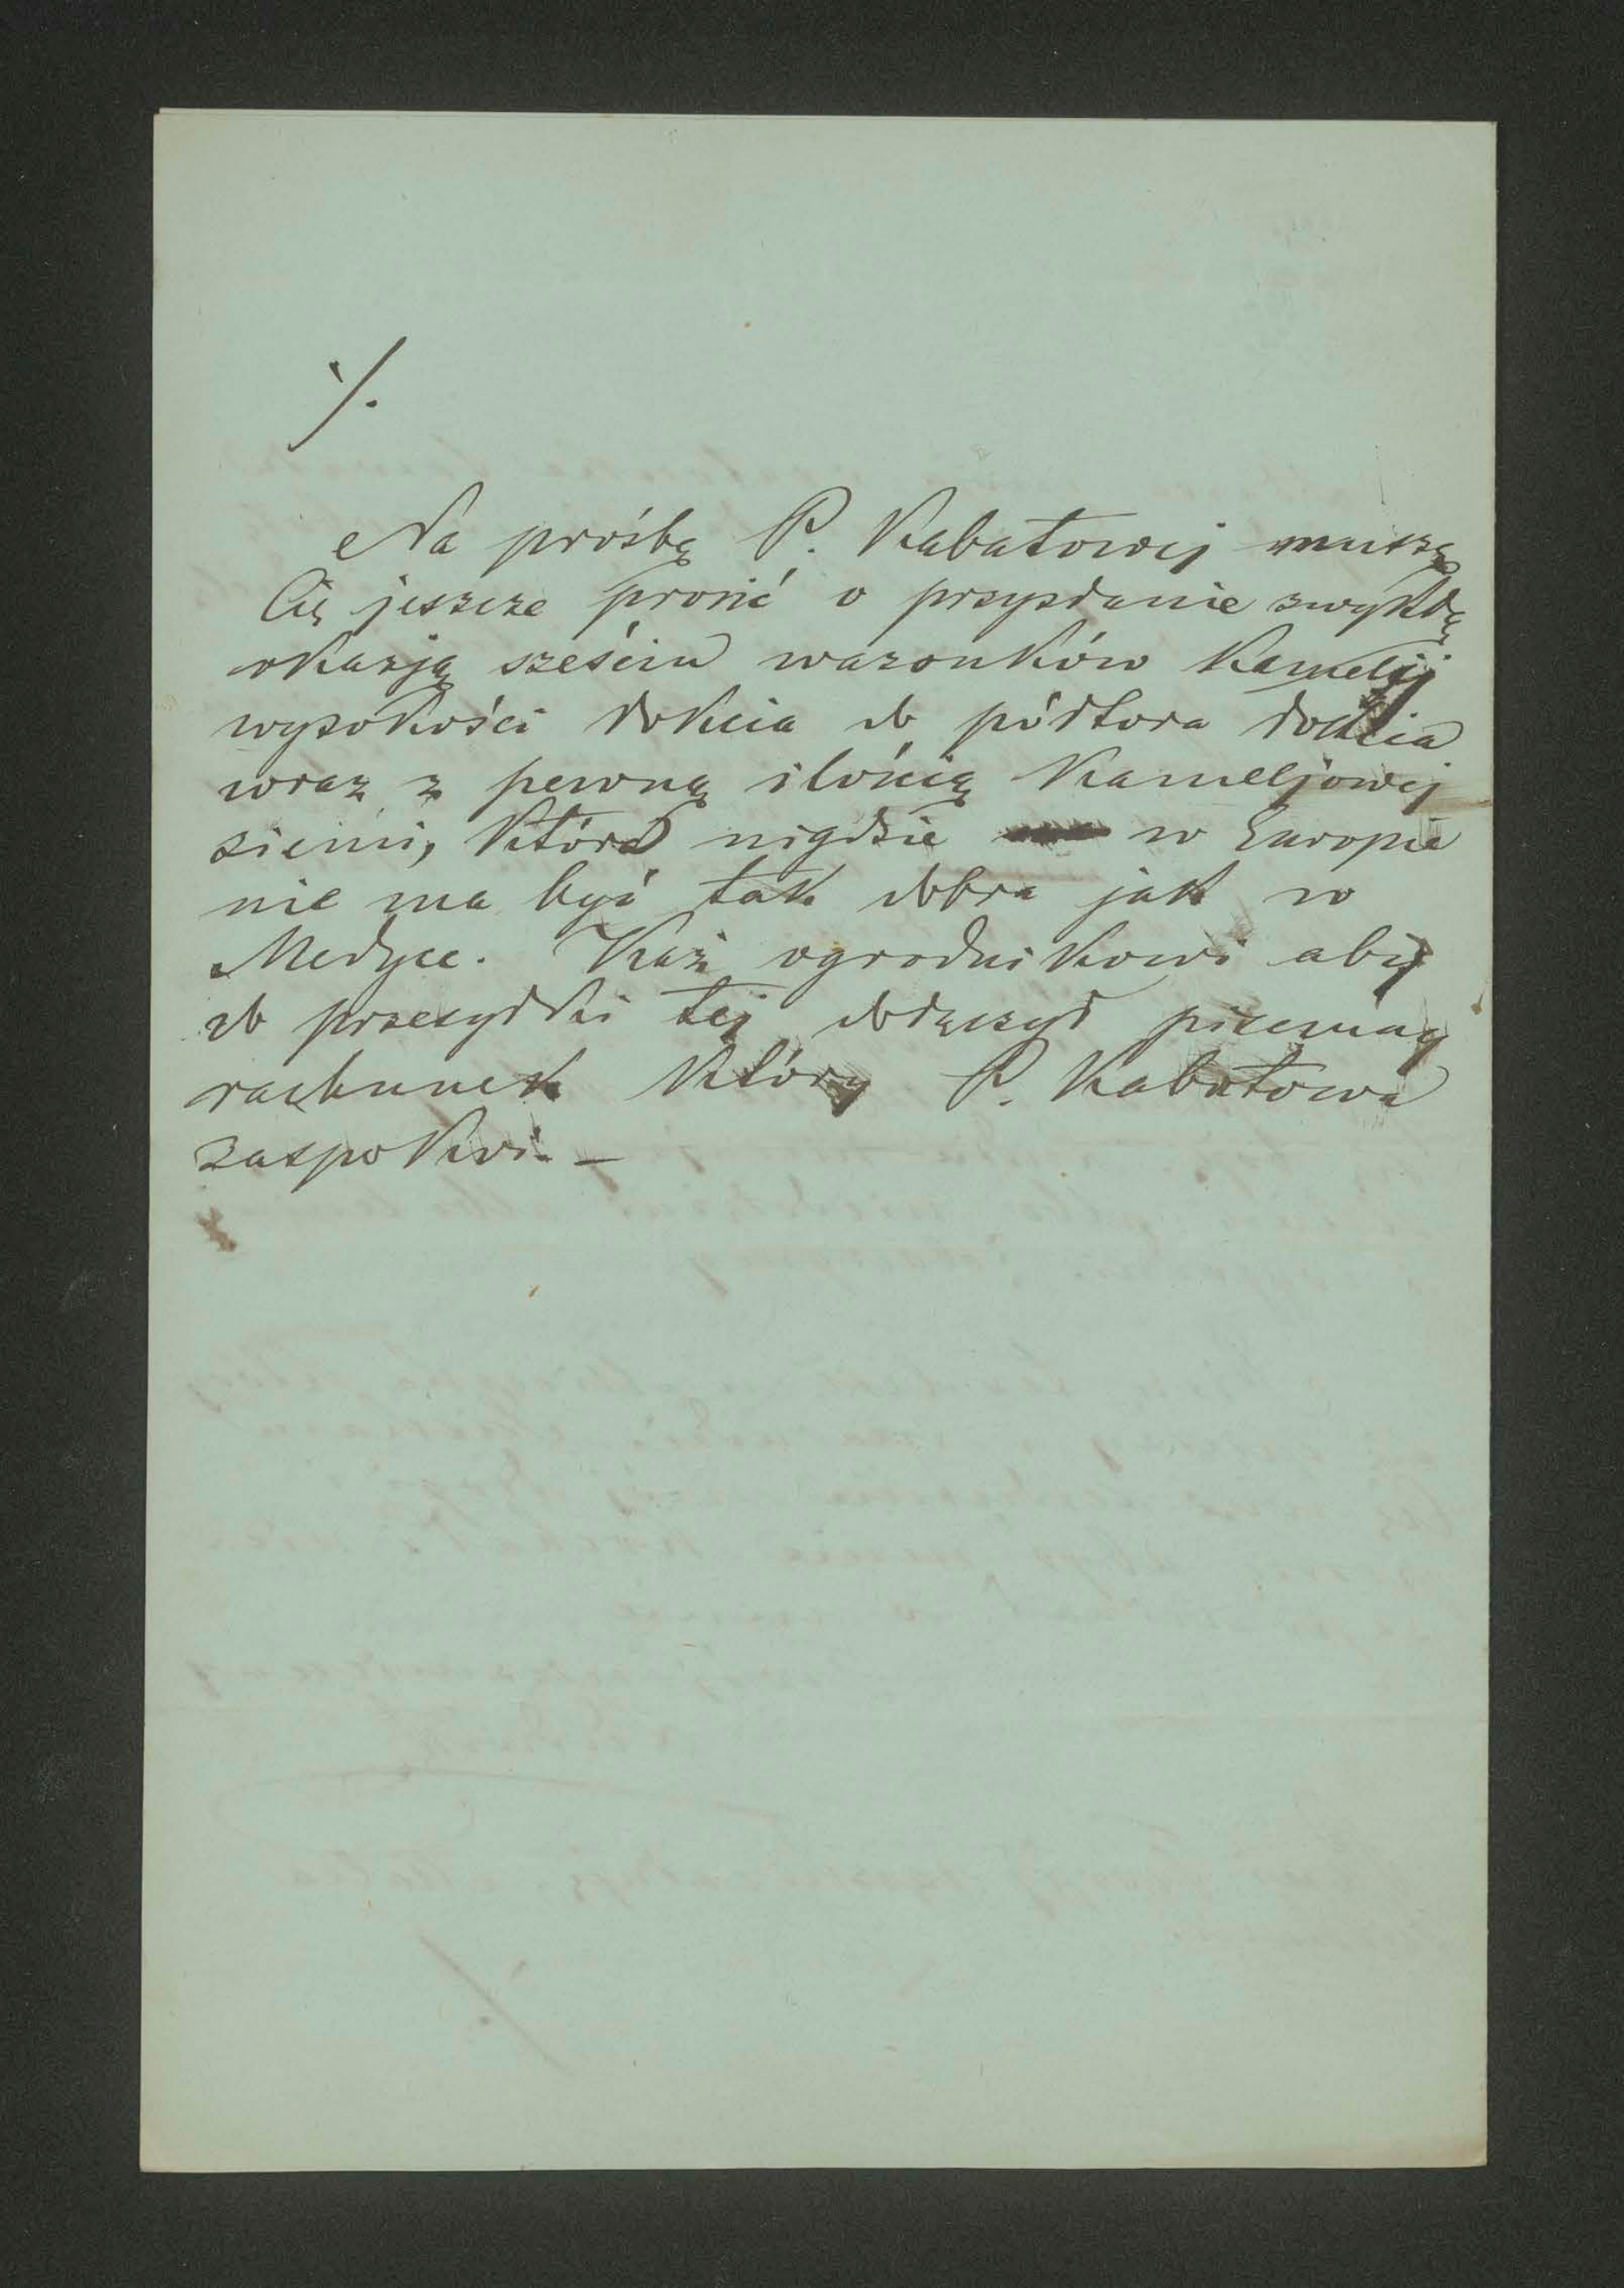 ./.
Na prośbę P. Kabatowej muszę
Cię jeszcze prosić o przysłanie zwykłą
okazją sześciu wazonków Kamelij
wysokości łokcia do półtora łokcia
wraz z pewną ilością Kameljowej
ziemi, która nigdzie w Europie
nie ma być tak dobra jak w
Medyce. Każ ogrodnikowi aby
do przesyłki tej dołączył pisemny
rachunek który P. Kabatowa
zaspokoi. –